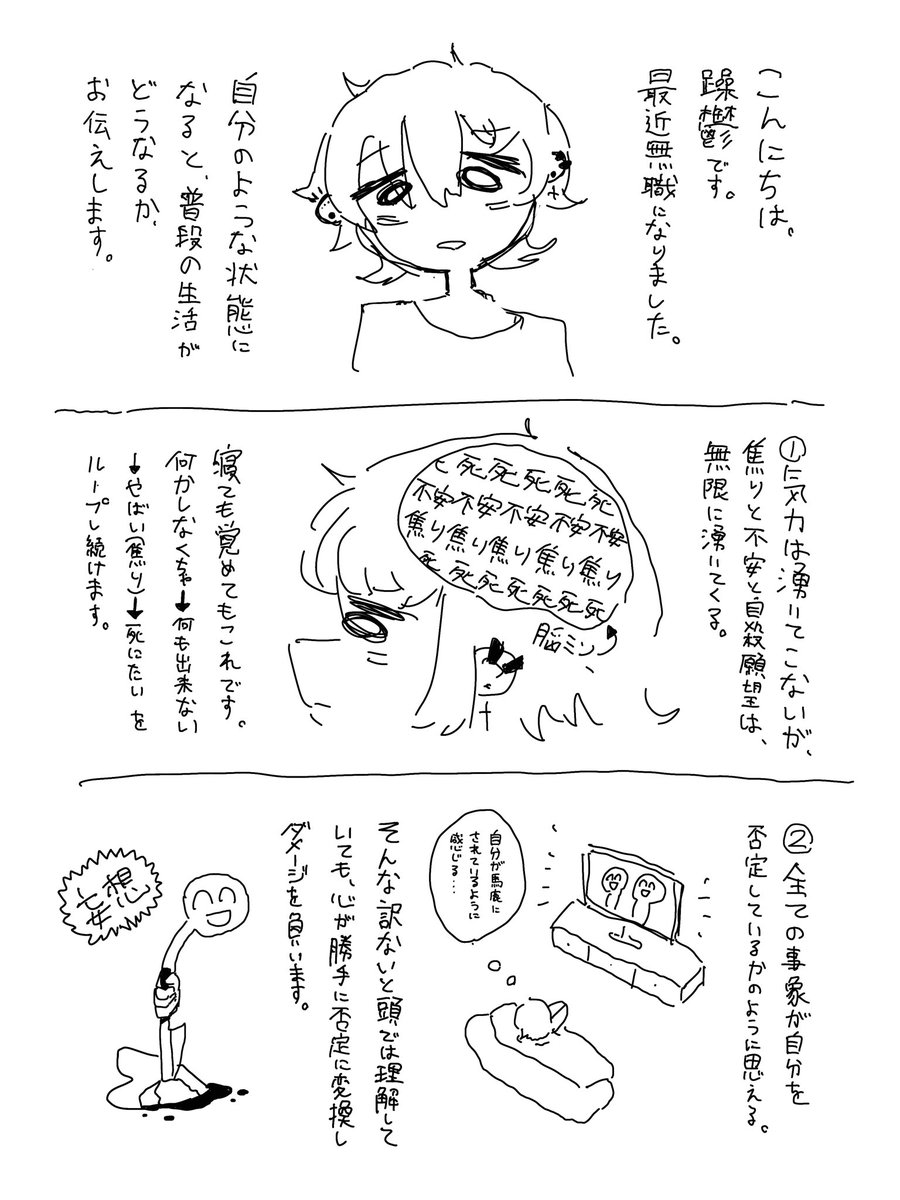 こんにちは。
躁鬱です。
最近無職になりました。
自分のような状態に
なると、普段の生活が
どうなるか、
お伝えします。
①気力は湧いてこないが、
焦りと不安と自殺願望は、
無限に湧いてくる。
死死死死死
不安不安不安不安不安
焦り焦り焦り焦り焦り
死死死死死死死
脳ミソ
寝ても覚めてもこれです。
何かしなくちゃ→何も出来ない
→やばい(焦り)→死にたい を
ループし続けます。
②全ての事象が自分を
否定しているかのように思える。
自分が馬鹿に
されているように
感じる...
そんな訳ないと頭では理解して
いても、心が勝手に否定に変換し
ダメージを負います。
妄想